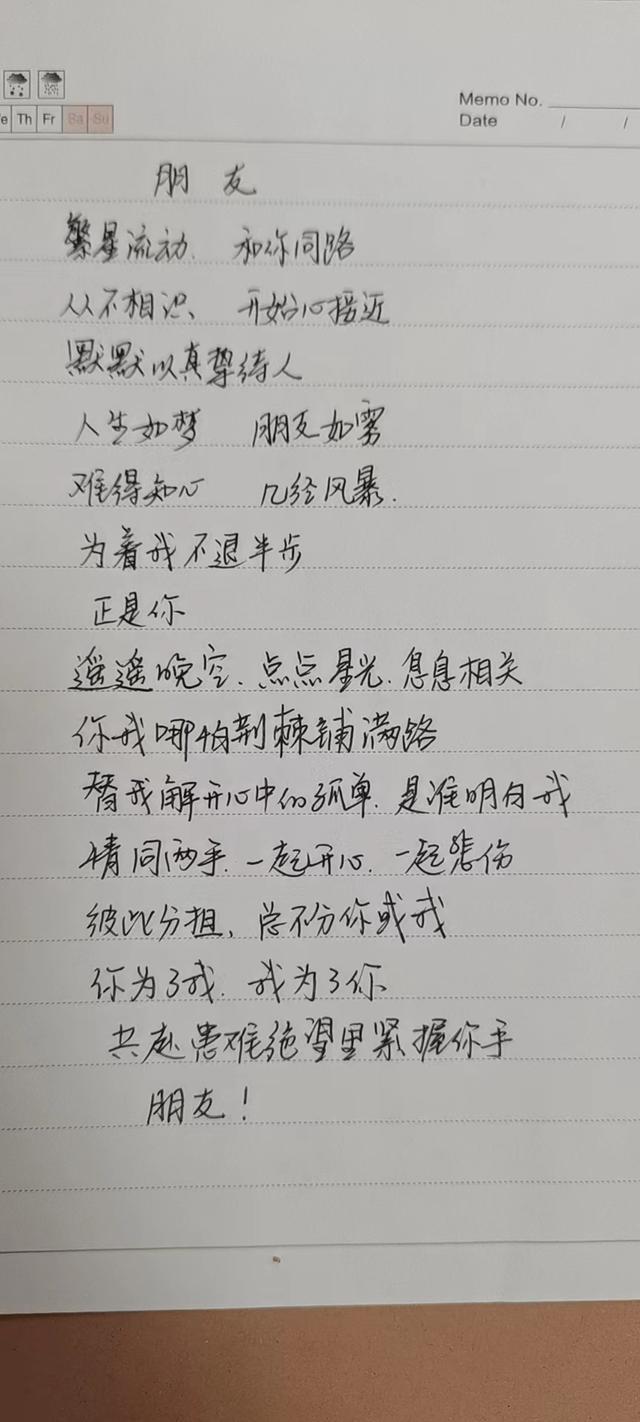 e Th Fr Sa Su
Memo No.
Date / /
朋 友
繁星流动. 和你同路
从不相识、 开始心接近
默默以真挚待人
人生如梦 朋友如雾
难得知心 几经风暴.
为着我不退半步
正是你
遥遥晚空. 点点星光. 息息相关
你我哪怕荆棘铺满路
替我解开心中的孤单. 是谁明白我
情同两手. 一起开心. 一起悲伤
彼此分担, 总不分你或我
你为了我. 我为了你
共赴患难绝望里紧握你手
朋友!